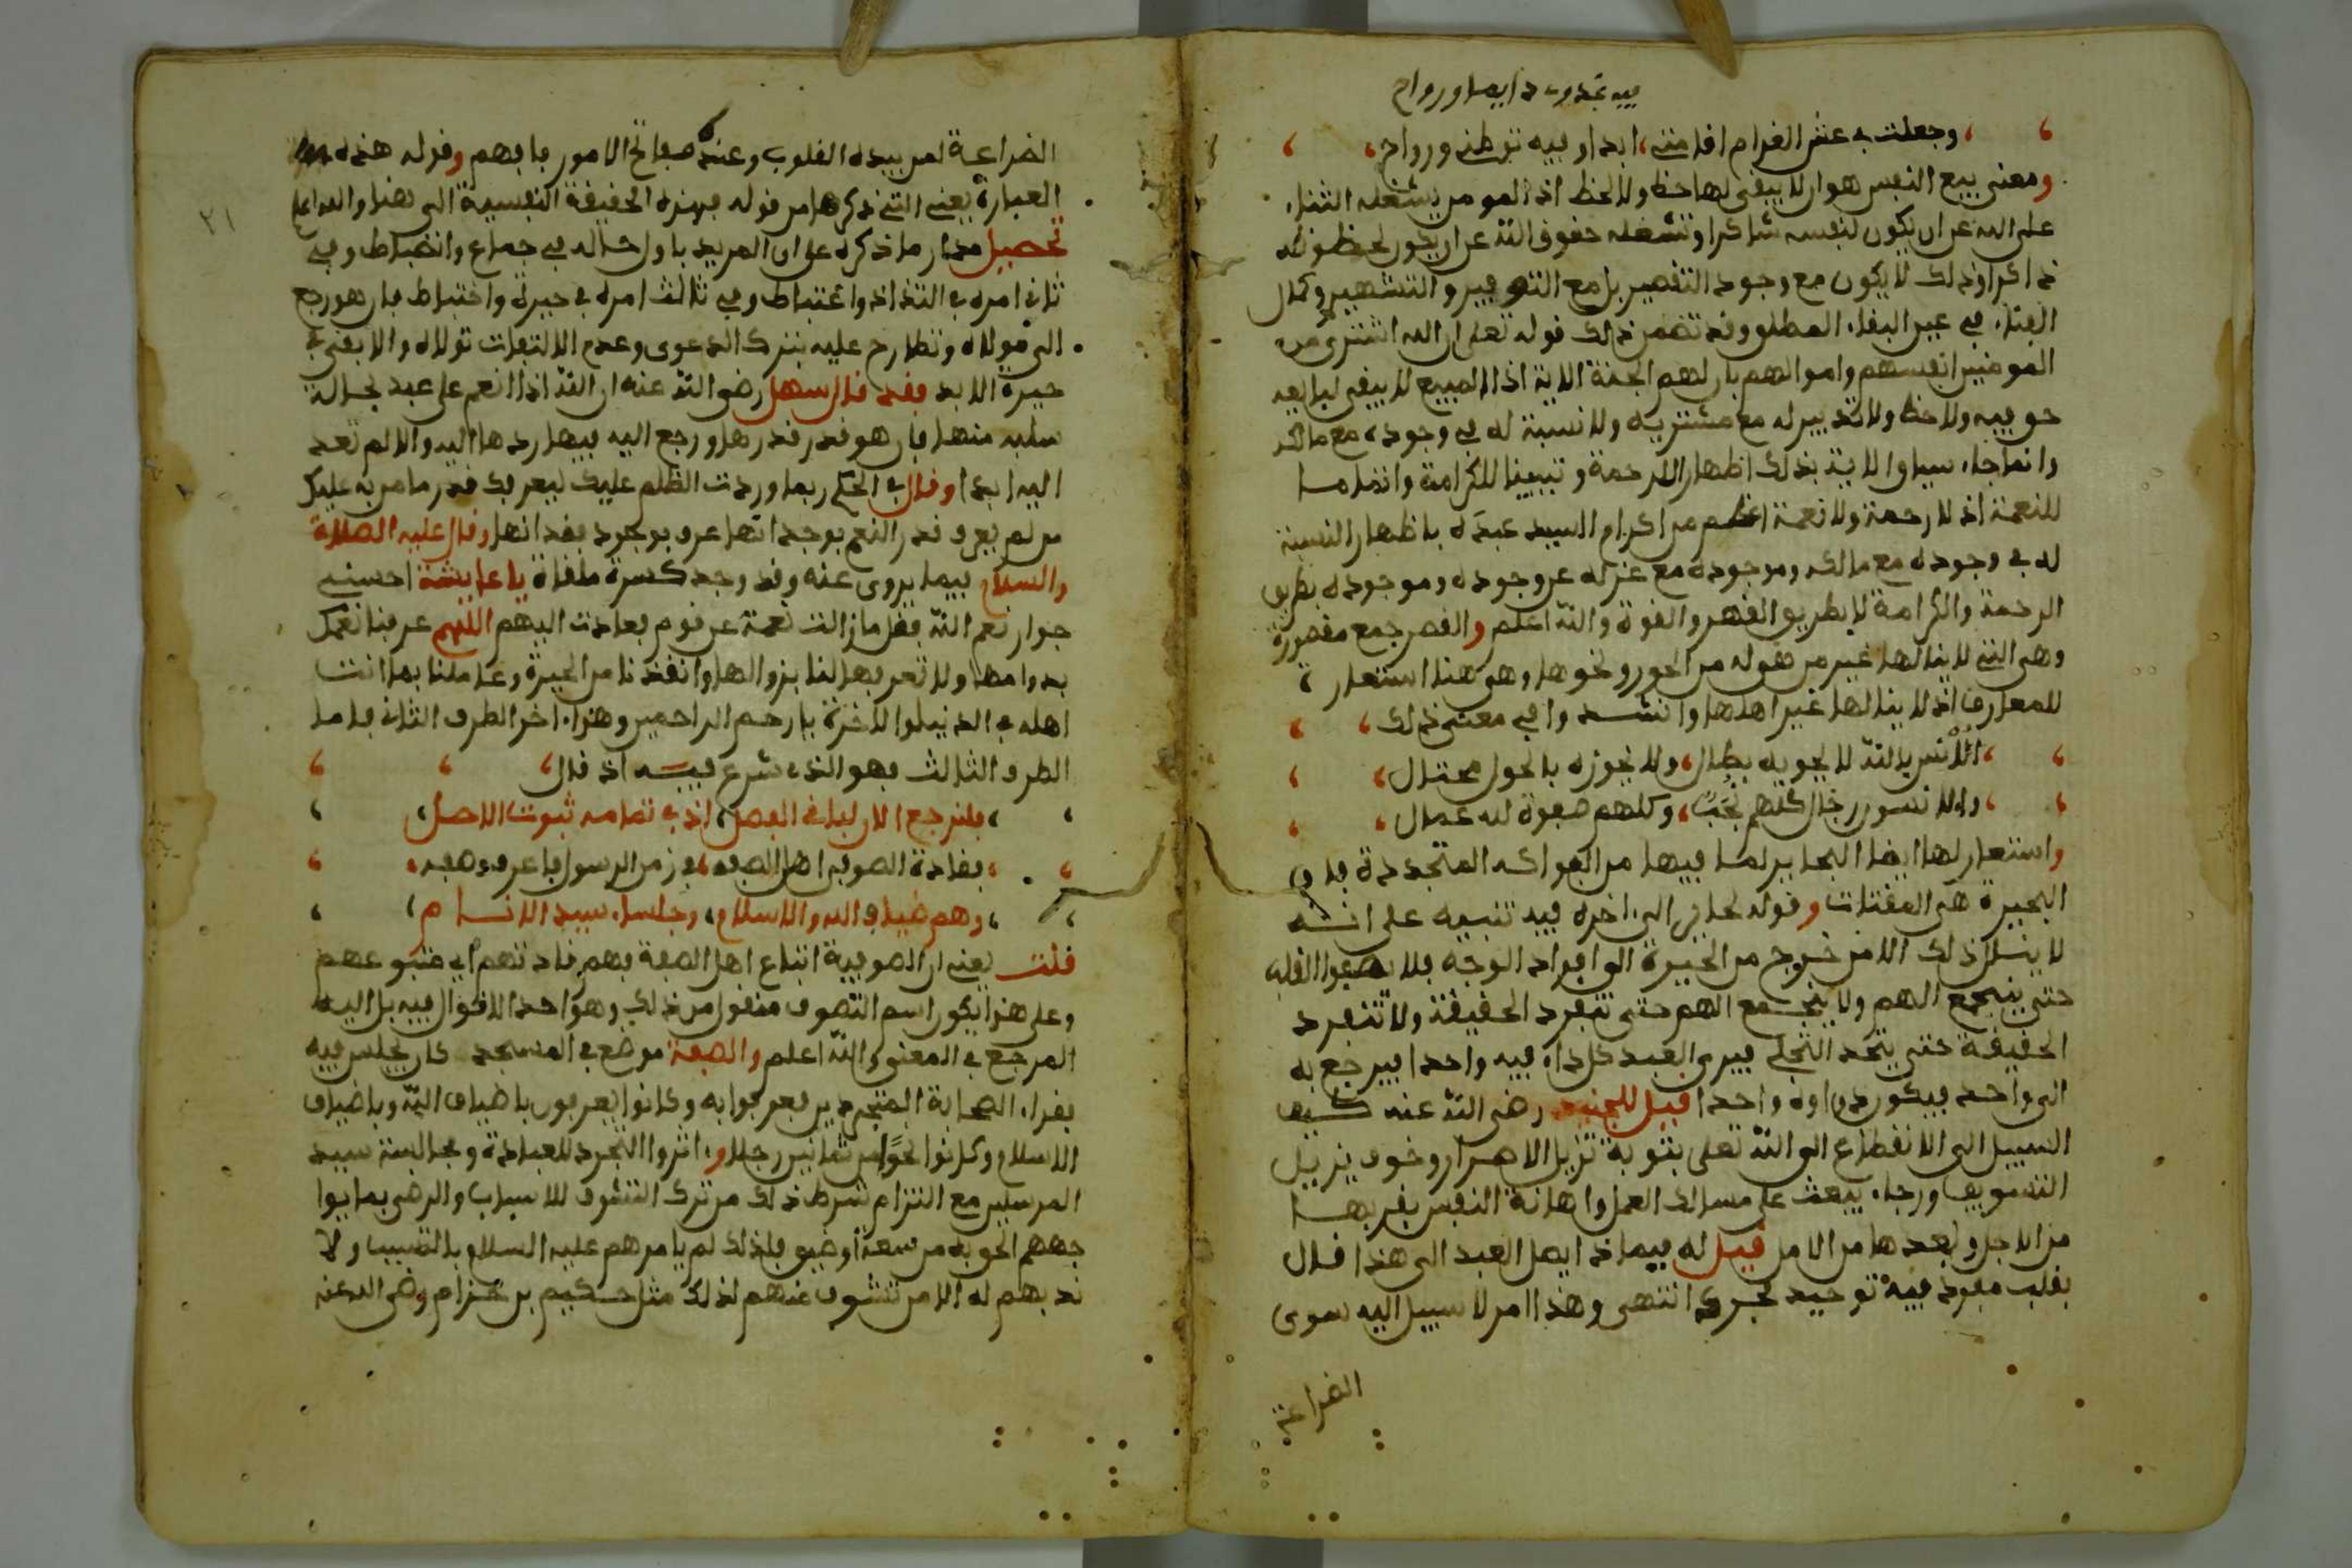 فيه غدو دايما ورواح
وجعلت في عش الغرام اقامتي، ابدا وفيه توطني ورواح
ومعنى بيع النفس هو ان لا يبقى لها حظ ولا لحظ اذ المومن يشغله الثناء
على الله عن ان يكون لنفسه شاكرا وتشغله حقوق الله عن ان يكون لحظوظه
ذاكرا وذلك لا يكون مع وجود التقصير بل مع التوفير والتشمير وكمال
الفناء في عين البقاء المطلق وقد تضمن ذلك قوله تعلى ان الله اشترى من
المومنين انفسهم واموالهم بان لهم الجنة الاية اذ المبيع لا يبقى لبايعه
حق فيه ولا حظ ولا تدبير له مع مشتريه ولا نسبة له في وجوده مع مالكه
وانما جاء سياق الاية بذلك اظهارا للرحمة وتبيينا للكرامة واتماما
للنعمة اذ لا رحمة ولا نعمة اعظم من اكرام السيد عبده باظهار النسبة
له في وجوده مع مالكه وموجوده مع عزله عن وجوده وموجوده بطريق
الرحمة والكرامة لا بطريق القهر والقوة والله اعلم والقصر جمع مقصورة
وهي التي لا ينالها غير من هي له من الحور ونحوها وهي هنا استعارة
للمعارف اذ لا ينالها غير اهلها وانشدوا في معنى ذلك
الانس بالله لا يحويه بطال، ولا يحوزه بالحول محتال
والانسون رجال كلهم نجب، وكلهم صفوة لله عمال
واستعار لها ايضا البحاير لما فيها من الفواكه المتجددة فان
البحيرة هي المقتات وقوله لحاير الى اخره فيه تنبيه على انه
لا ينال ذلك الا من خرج من الحيرة الى افراد الوجه فلا يصفوا القلب
حتى ينجمع الهم ولا ينجمع الهم حتى تنفرد الحقيقة ولا تنفرد
الحقيقة حتى يتحد التجلي فيرى العبد كل داء فيه واحدا فيرجع به
الى واحد فيكون دواوه واحدا قيل للجنيد رضي الله عنه كيف
السبيل الى الانقطاع الى الله تعلى بتوبة تزيل الاصرار وخوف يزيل
التسويف ورجاء يبعث على مسالك العمل واهانة النفس بقربها
من الاجل وبعدها من الامل قيل له فيماذا يصل العبد الى هذا قال
بقلب مفرد فيه توحيد مجرد انتهى وهذا امر لا سبيل اليه سوى
الضراعة
٢١
الضراعة لمن بيده القلوب وعنده مفاتح الامور فافهم وقوله هذه
العبارة يعني التي ذكرها من قوله فهذه الحقيقة النفسية الى هنا والله اعلم
تحصيل مدار ما ذكره على ان المريد باول حاله في جماع وانضباط وفي
ثاني امره في التذاذ واغتباط وفي ثالث امره في حيرة واختباط فان هو رجع
الى مولاه وتطارح عليه بترك الدعوى وعدم الالتفات تولاه والا بقي في
حيرة الابد فقد قال سهل رضي الله عنه ان الله اذا انعم على عبد بحالة
سلبه منها فان هو قدر قدرها ورجع اليه فيها ردها اليه والا لم تعد
اليه ابدا وقال في الحكم ربما وردت الظلم عليك ليعرفك قدر ما من به عليك
من لم يعرف قدر النعم بوجدانها عرف بوجود فقدانها وقال عليه الصلاة
والسلام فيما يروى عنه وقد وجد كسرة ملقاة يا عايشة احسني
جوار نعم الله فقل ما زالت نعمة عن قوم فعادت اليهم اللهم عرفنا نعمك
بدوامها ولا تعرفها لنا بزوالها وانقذنا من الحيرة وعاملنا بما انت
اهله في الدنيا والاخرة يا ارحم الراحمين وهذا اخر الطرف الثاني فاما
الطرف الثالث فهو الذي شرع فيه اذ قال
فلنرجع الان لباقي الفصل، اذ في تمامه ثبوت الاصل
فقادة الصوفي اهل الصفه، في زمن الرسول فاعرف وصفه
وهم ضياف الله والاسلام، وجلساء سيد الانام
قلت يعني ان الصوفية اتباع اهل الصفة فهم قادتهم اي متبوعهم
وعلى هذا يكون اسم التصوف منقول من ذلك وهو احد الاقوال فيه بل اليه
المرجع في المعنى والله اعلم والصفة موضع في المسجد كان يجلس فيه
فقراء الصحابة المتجردين فعرفوا به وكانوا يعرفون باضياف الله وباضياف
الاسلام وكانوا نحوا من ثمانين رجلا و اثروا التجرد للعبادة ومجالسة سيد
المرسلين مع التزام شرط ذلك من ترك التشوف للاسباب والرضى بما يوا
جههم الحق به من سعة او ضيق فلذلك لم يامرهم عليه السلام بالتسبب ولا
ندبهم له الا من تشوف منهم لذلك مثل حكيم بن حزام رضي الله عنه